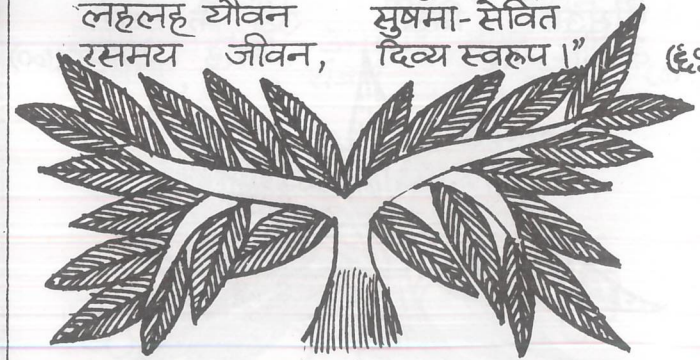 लहलह यौवन सुषमा-सेवित
रसमय जीवन, दिव्य स्वरूप।”